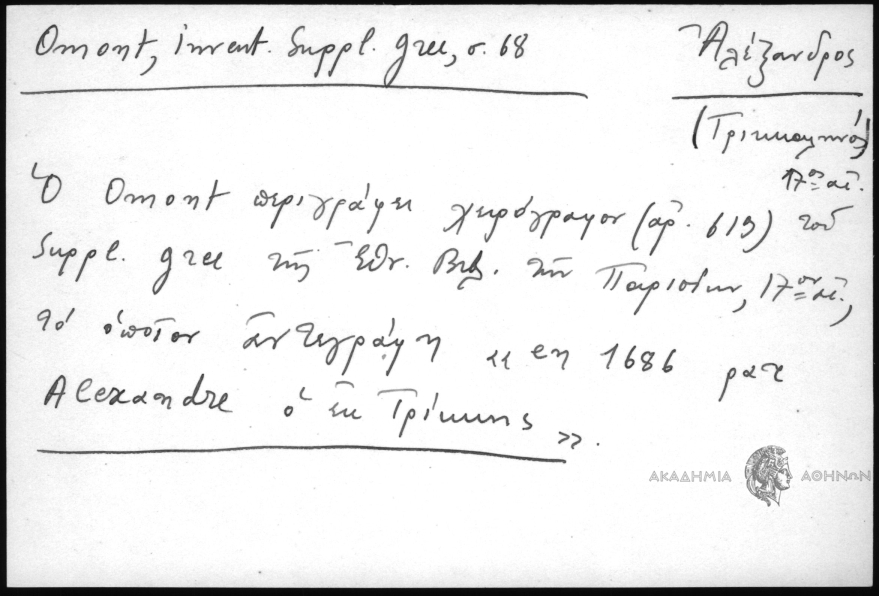 Omont, invent. Suppl. grec, σ. 68
Ἀλέξανδρος
(Τρικκαληνός)
17ος αἰ.
Ὁ Omont περιγράφει χειρόγραφον (ἀρ. 619) τοῦ
Suppl. grec τῆς Ἐθν. Βιβλ. τῶν Παρισίων, 17ου αἰ.,
τὸ ὁποῖον ἀντεγράφη «en 1686 par
Alexandre ὁ ἐκ Τρίκκης».
ΑΚΑΔΗΜΙΑ ΑΘΗΝΩΝ